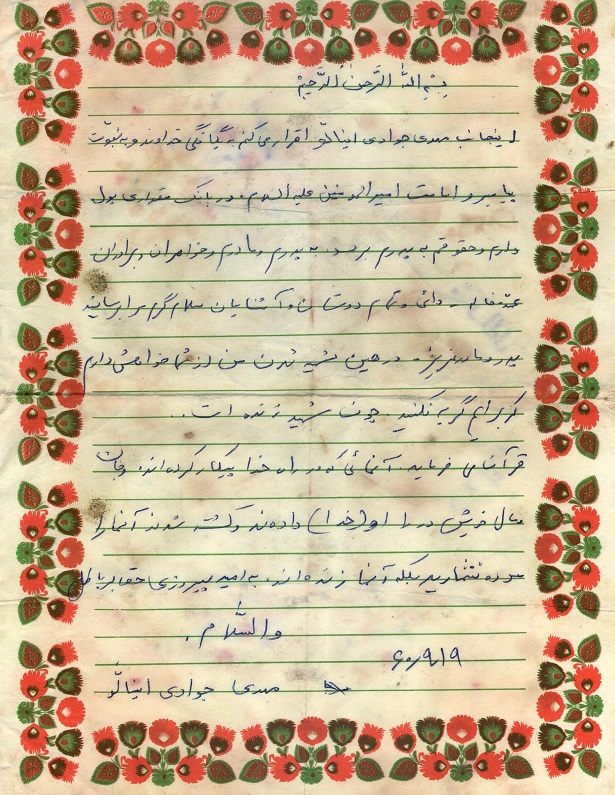 بِسْمِ اللهِ الرَّحمنِ الرَّحیمْ
اینجانب مهدی جوادی اینالّو اقرار می‌کنم به یگانگی خداوند و به نبوّت
پیامبر و امامت امیرالمومنین علیه السلام. در بانک مقداری پول
دارم و حقوقم به پدرم برسد. به پدرم و مادرم و خواهران و برادران
عمّه خاله دائی و تمام دوستان و آشنایان سلام گرم مرا برسانید
پدر و مادر عزیزم در حین شهید شدن من از شما خواهش دارم
که برایم گریه نکنید. چون شهید زنده است...
قرآن می فرماید. آنهائی که در راه خدا پیکار کرده اند و جان
مال خویش در راه او (خدا) داده‌ند و کشته شدند آنها را
مرده نشمارید بلکه آنها زنده اند. به امید پیروزی حق بر باطل
والسَّلام.
۶۰/۹/۱۹
مهدی جوادی اینالّو